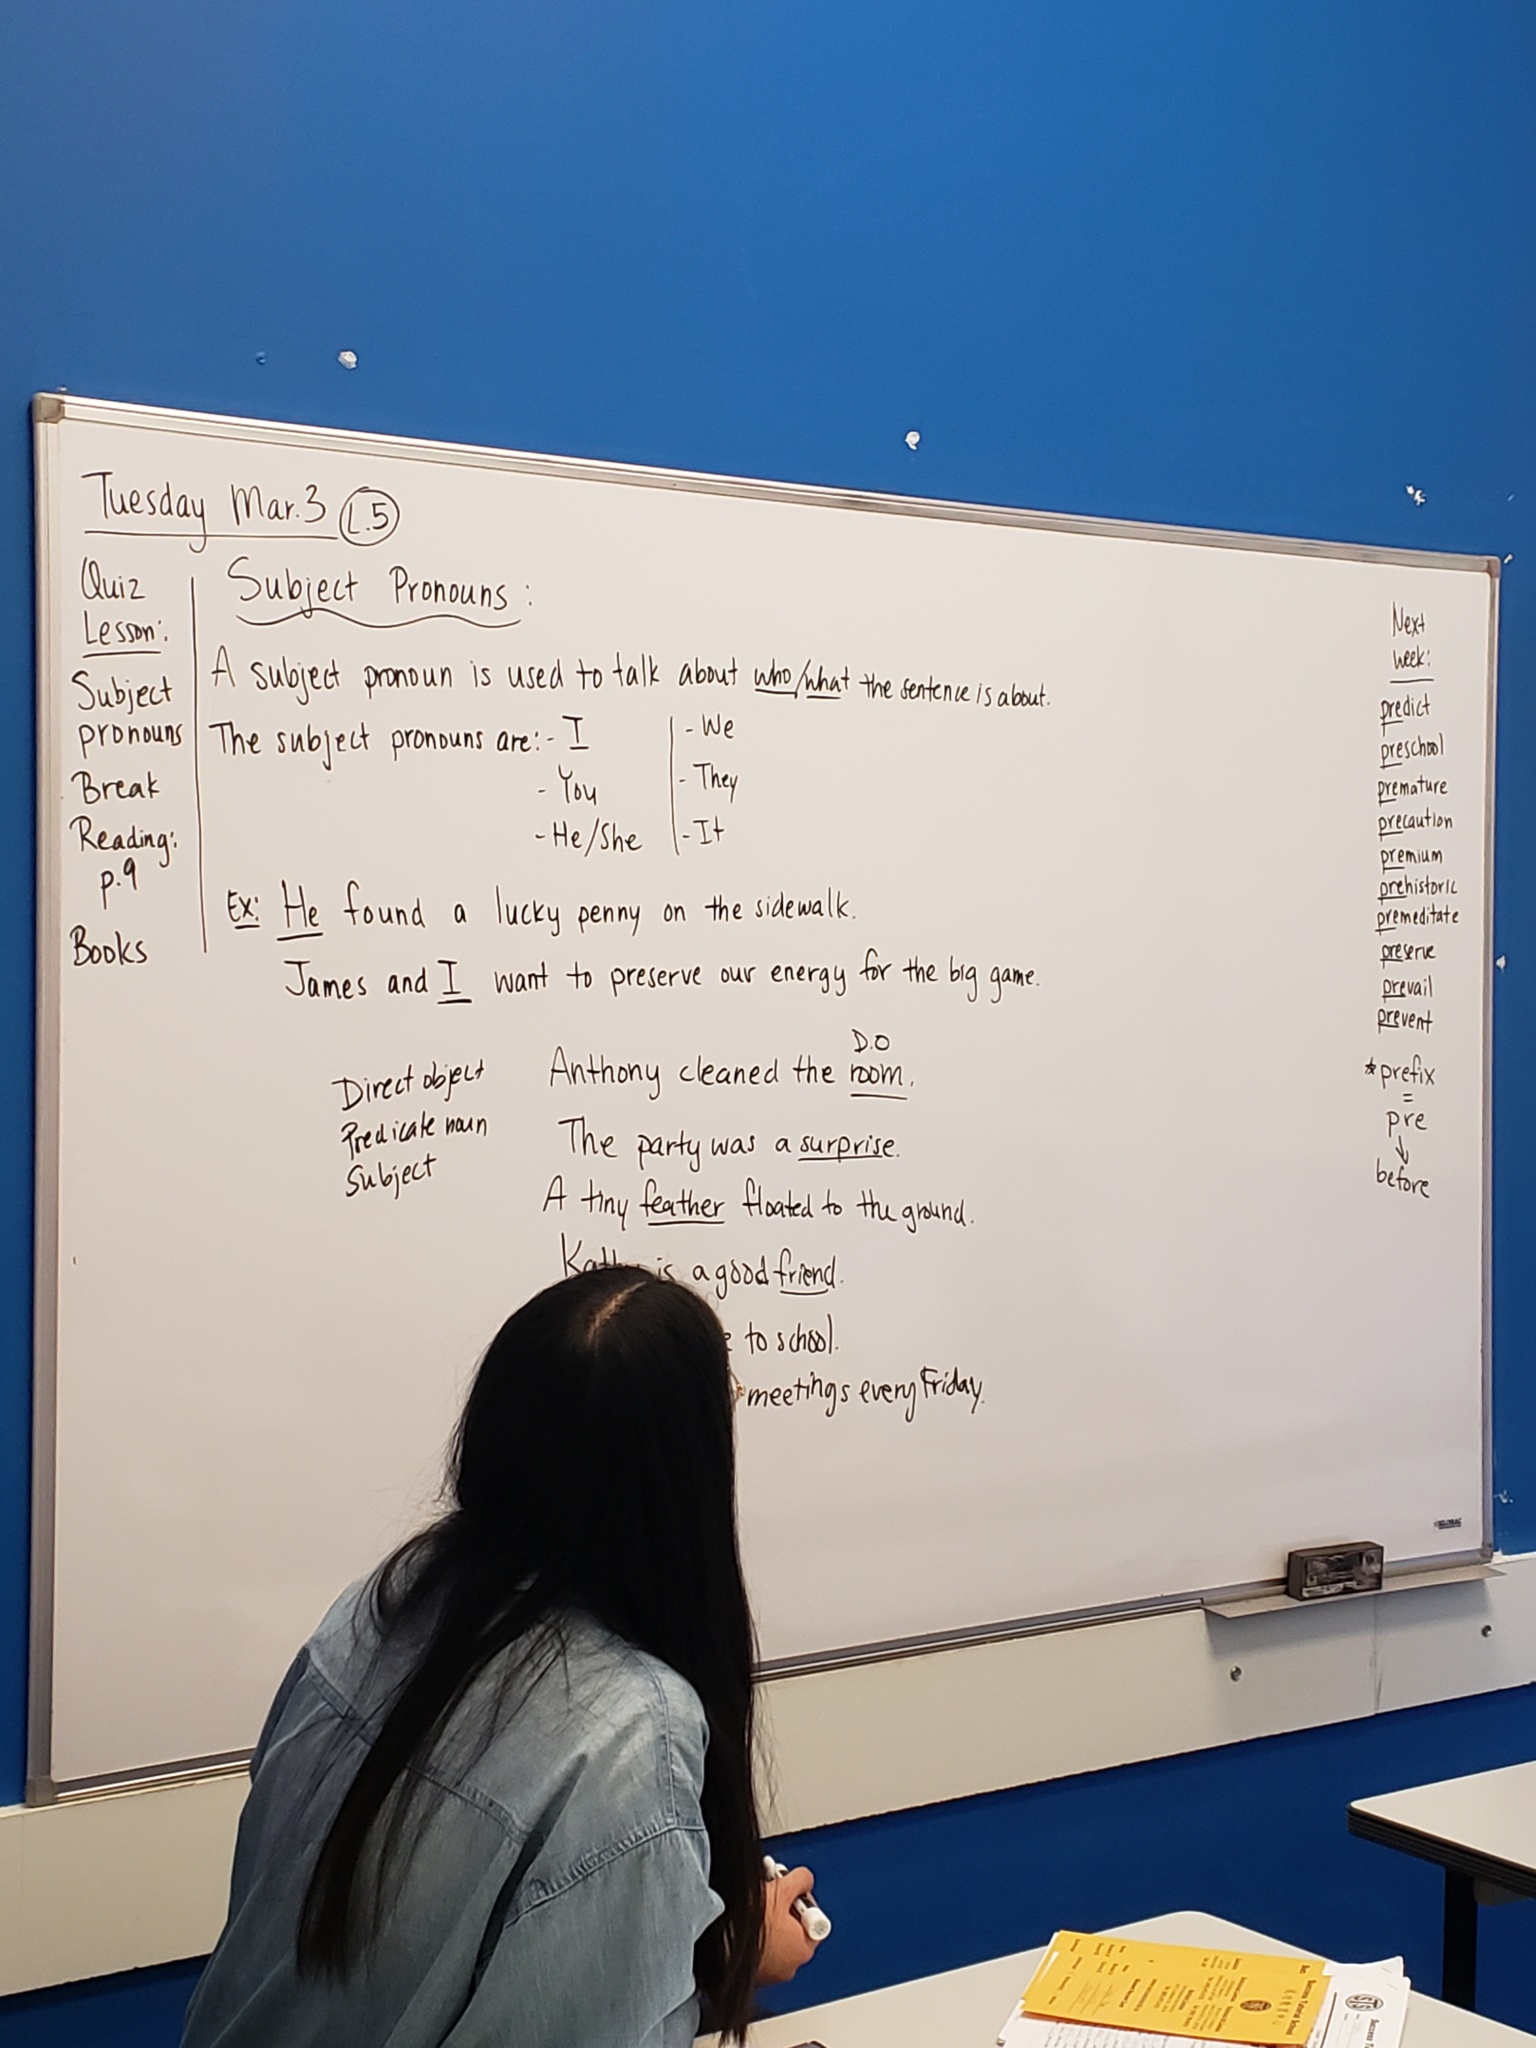 Tuesday Mar. 3 L.5
Quiz
Lesson:
Subject
pronouns
Break
Reading:
p.9
Books
Subject Pronouns:
A subject pronoun is used to talk about who/what the sentence is about.
The subject pronouns are: - I
- You
- He/She
- We
- They
- It
Ex: He found a lucky penny on the sidewalk.
James and I want to preserve our energy for the big game.
Direct object
Predicate noun
Subject
D.O
Anthony cleaned the room.
The party was a surprise.
A tiny feather floated to the ground.
is a good friend.
to school.
meetings every Friday.
Next
week:
predict
preschool
premature
precaution
premium
prehistoric
premeditate
preserve
prevail
prevent
*prefix
=
pre
↓
before